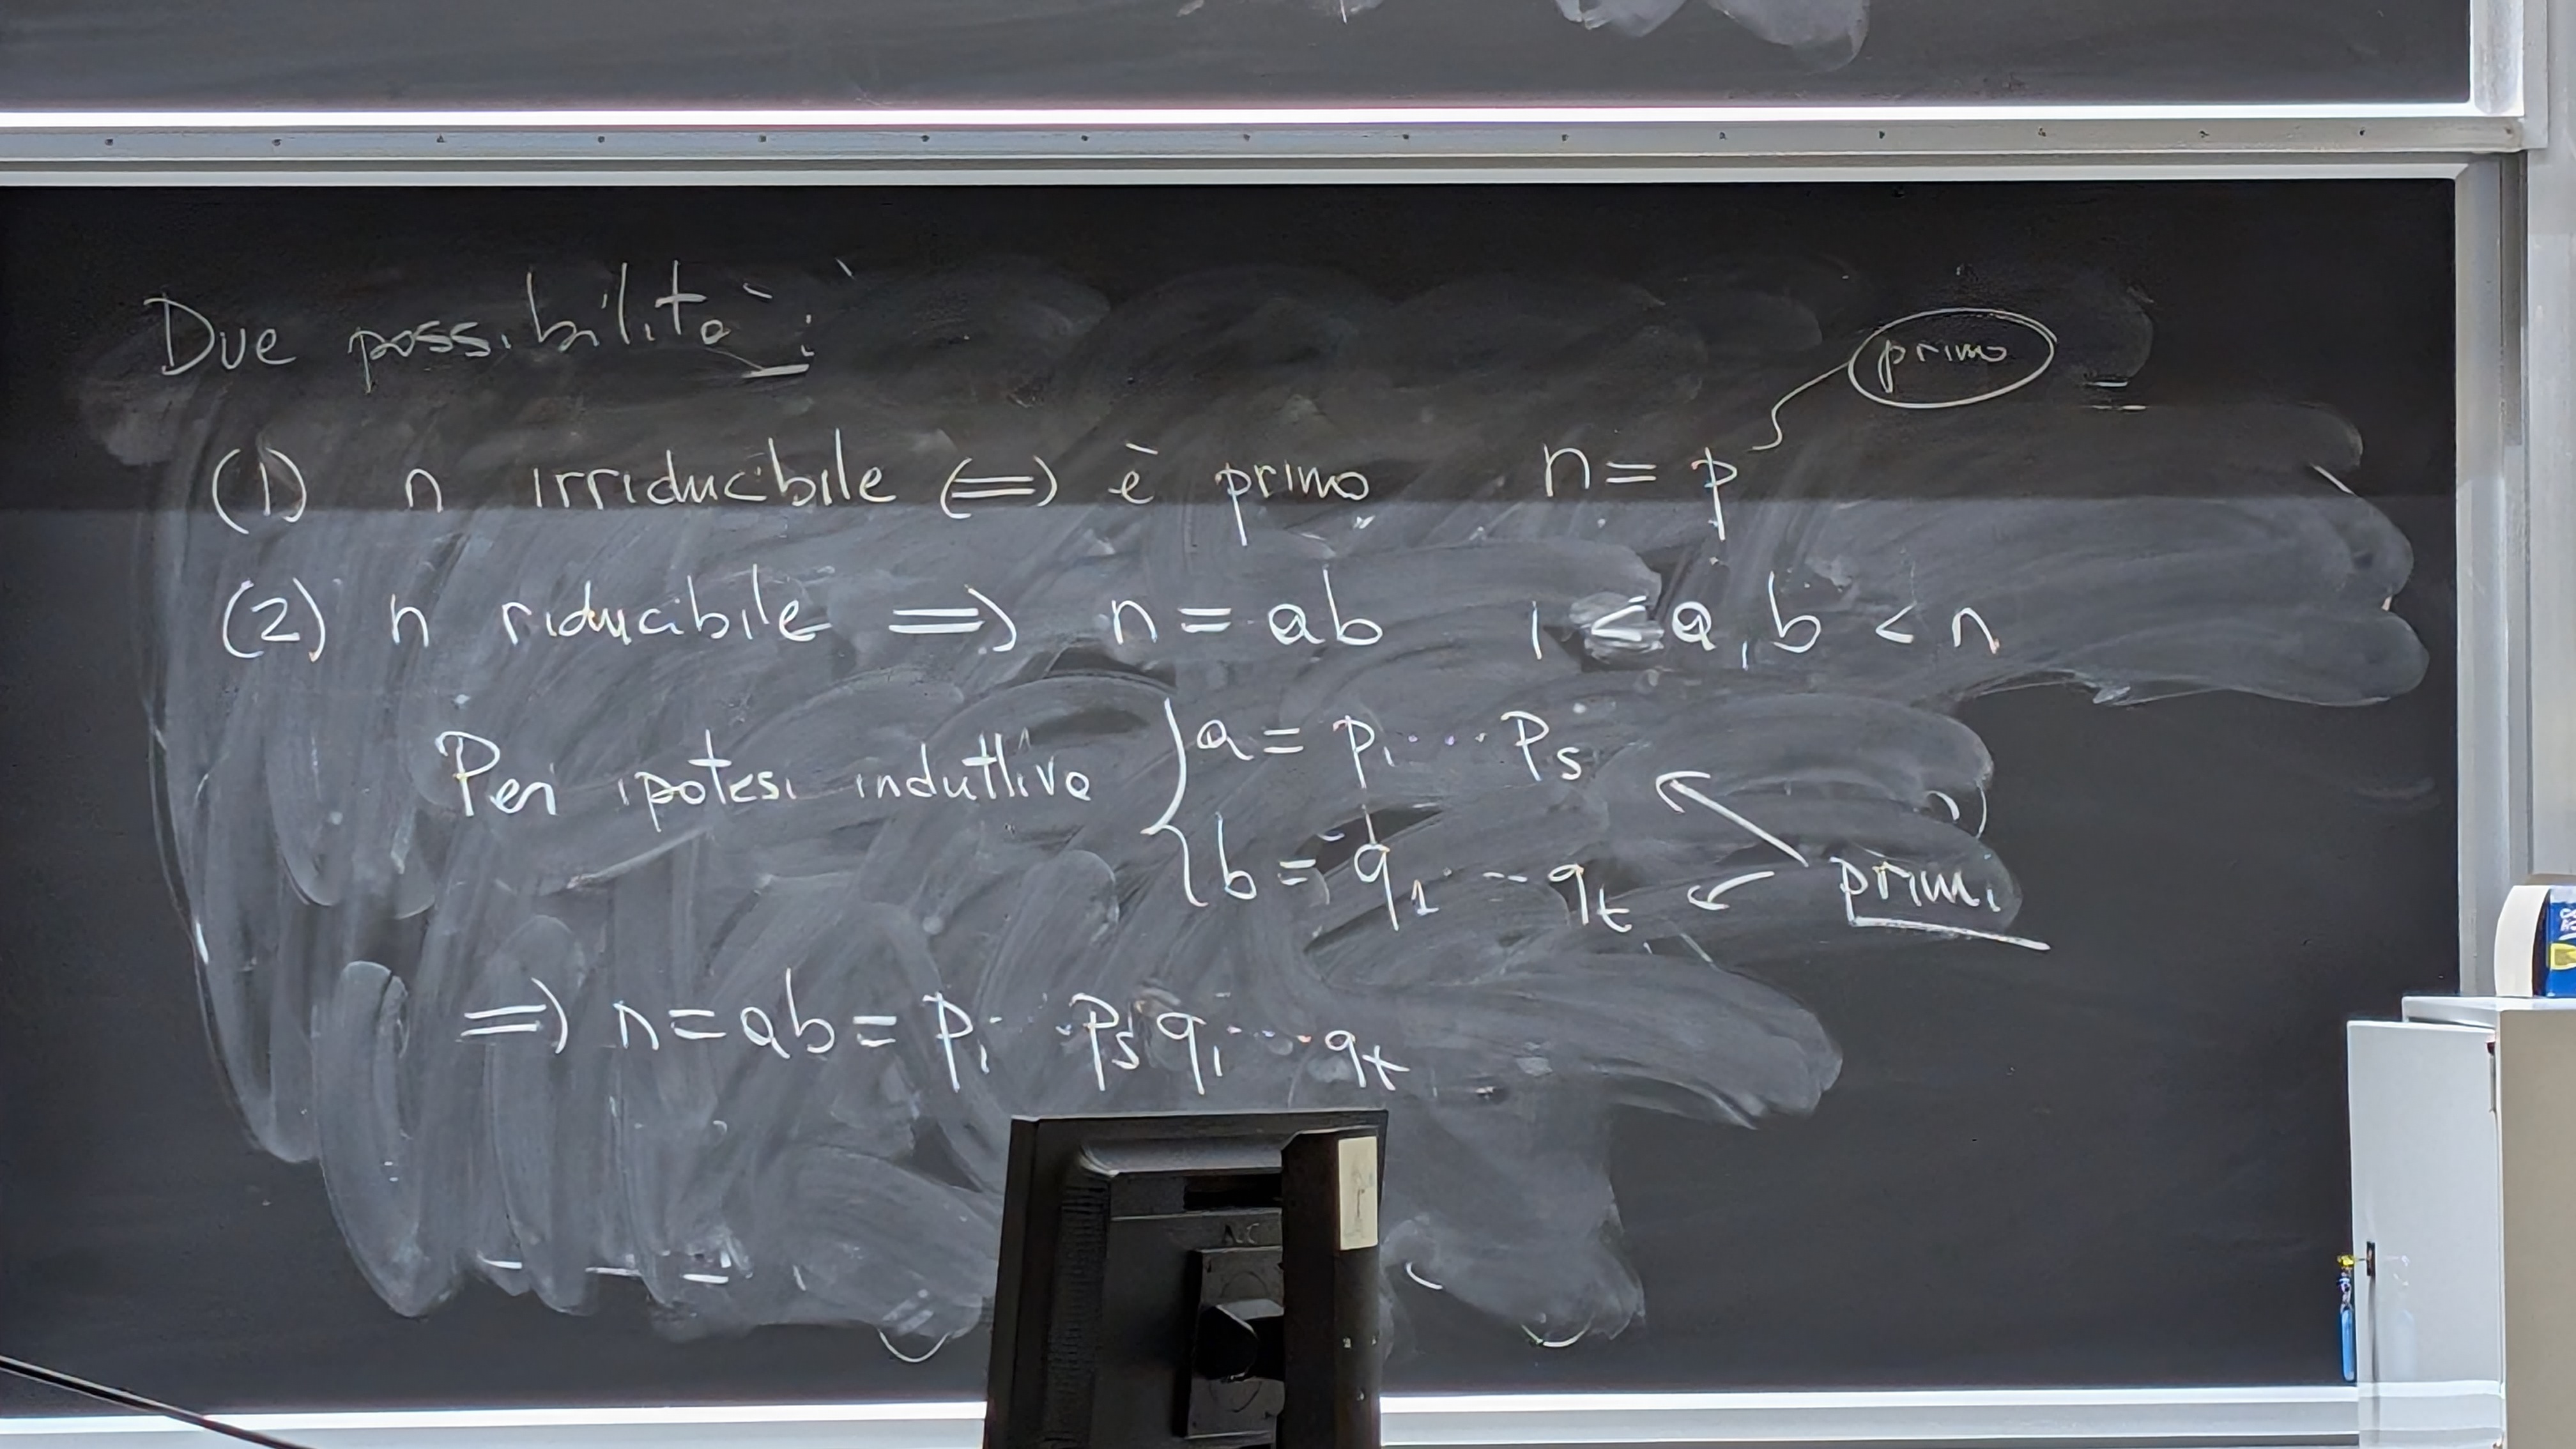 Due possibilità:
primo
(1) n irriducibile (=) è primo n = p
(2) n riducibile => n = ab 1 < a, b < n
Per ipotesi induttiva { a = p1 ... ps
b = q1 ... qt
primi
=> n = ab = p1 ... ps q1 ... qt